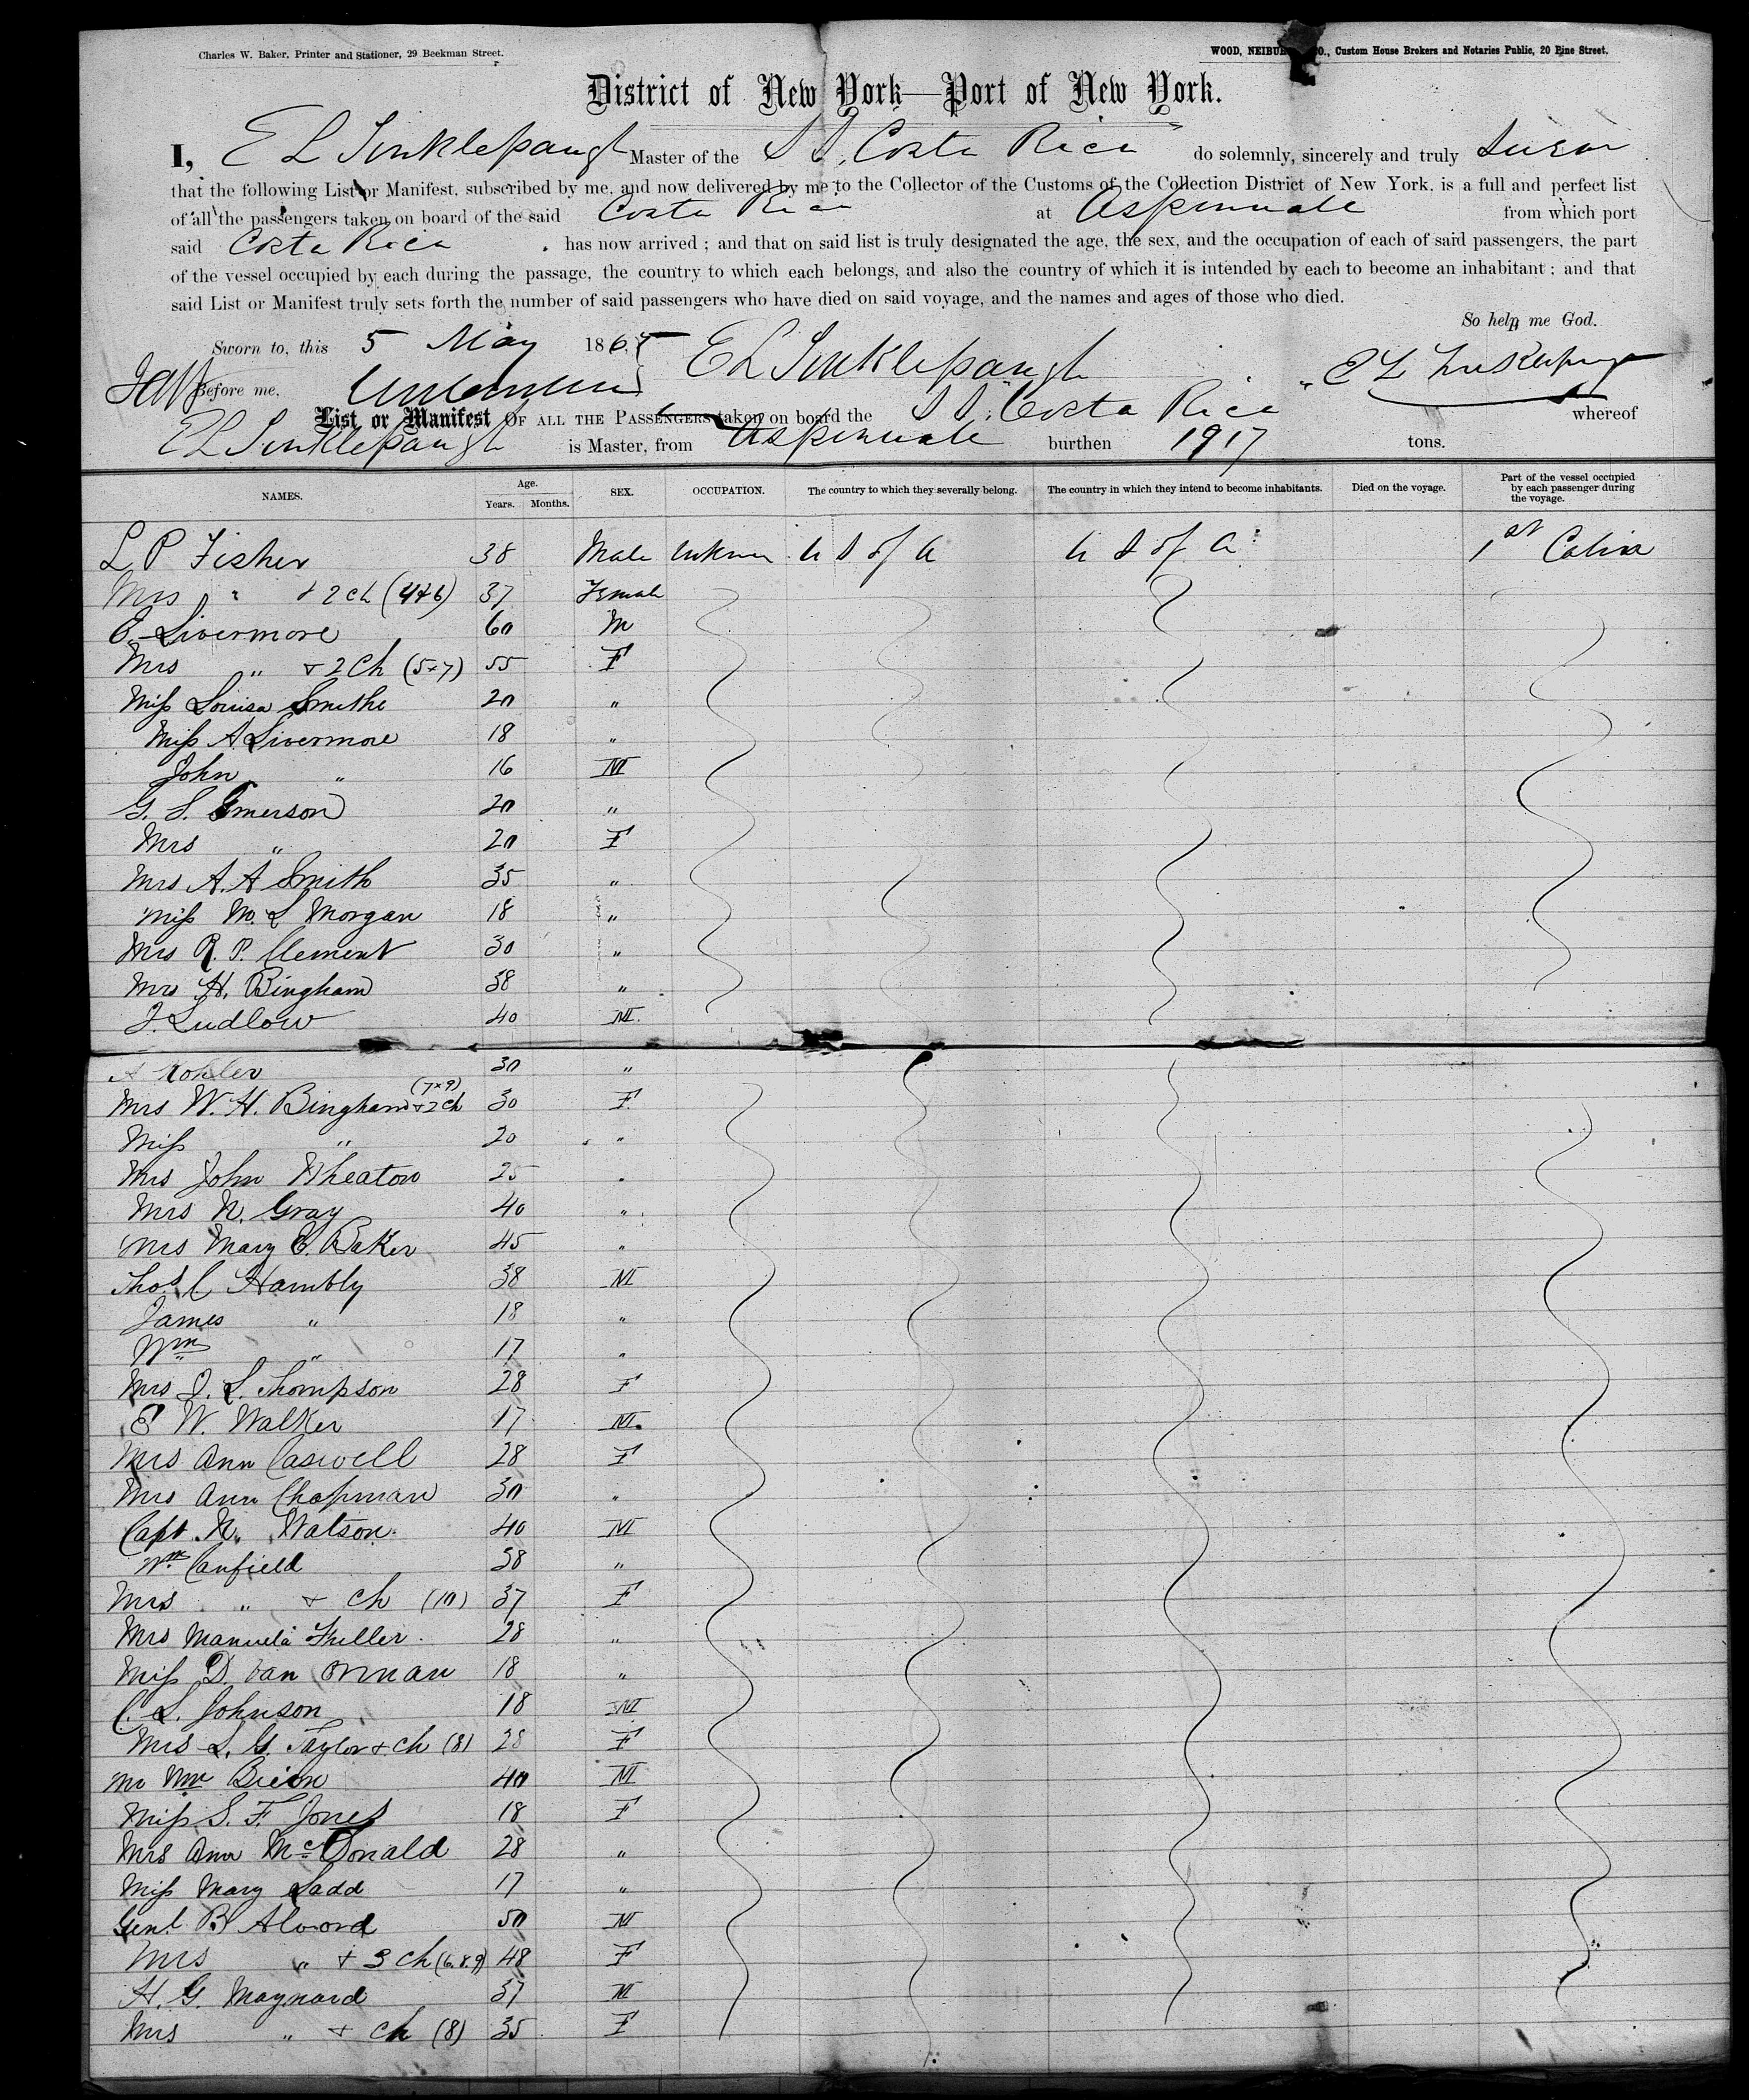 Charles W. Baker, Printer and Stationer, 29 Beekman Street.
WOOD, Custom House Brokers and Notaries Public, 20 Pine Street.
District of New York—Port of New York.
I, E L Tinklepaugh Master of the S S. Costa Rica do solemnly, sincerely and truly swear
that the following List or Manifest, subscribed by me, and now delivered by me to the Collector of the Customs of the Collection District of New York, is a full and perfect list
of all the passengers taken on board of the said Costa Rica at Aspinwall from which port
said Costa Rica has now arrived; and that on said list is truly designated the age, the sex, and the occupation of each of said passengers, the part
of the vessel occupied by each during the passage, the country to which each belongs, and also the country of which it is intended by each to become an inhabitant; and that
said List or Manifest truly sets forth the number of said passengers who have died on said voyage, and the names and ages of those who died.
So help me God.
Sworn to, this 5 May 1865 E L Tinklepaugh
Before me,
List or Manifest OF ALL THE PASSENGERS taken on board the S S. Costa Rica whereof
E L Tinklepaugh is Master, from Aspinwall burthen 1917 tons.
NAMES. Age. Years. Months. SEX. OCCUPATION. The country to which they severally belong. The country in which they intend to become inhabitants. Died on the voyage. Part of the vessel occupied by each passenger during the voyage.
L P Fisher 38 Male Unknown U S of A U S of A 1st Cabin
Mrs " + 2 ch (4+6) 37 Female
E. Livermore 60 M
Mrs " + 2 Ch (5+7) 55 F
Miss Louisa Smithe 20 "
Miss A Livermore 18 "
John " 16 M
G. S. Emerson 20 "
Mrs " 20 F
Mrs A. A Smith 35 "
Miss M. L Morgan 18 "
Mrs R. P. Clement 30 "
Mrs H. Bingham 38 "
J. Ludlow 40 M.
A Kohler 30 "
Mrs W. H. Bingham + 2 ch (7+9) 30 F.
Miss " 20 "
Mrs John Wheaton 25 "
Mrs N. Gray 40 "
Mrs Mary E. Baker 45 "
Thos. C Hambly 38 M
James " 18 "
Wm " 17 "
Mrs J. L. Thompson 28 F
E W. Walker 17 M.
Mrs Ann Caswell 28 F
Mrs Ann Chapman 30 "
Capt. N. Watson 40 M
Wm Canfield 38 "
Mrs " + ch (10) 37 F
Mrs Manuela Fuller 28 "
Miss D. Van Orman 18 "
C. L. Johnson 18 M
Mrs L. G. Taylor + ch (8) 28 F
Mr Wm 40 M
Miss S. F. Jones 18 F
Mrs Ann McDonald 28 "
Miss Mary Ladd 17 "
Genl. B Alvord 50 M
Mrs " + 3 ch (6. 8. 9) 48 F
H. G. Maynard 37 M
Mrs " + ch (8) 35 F